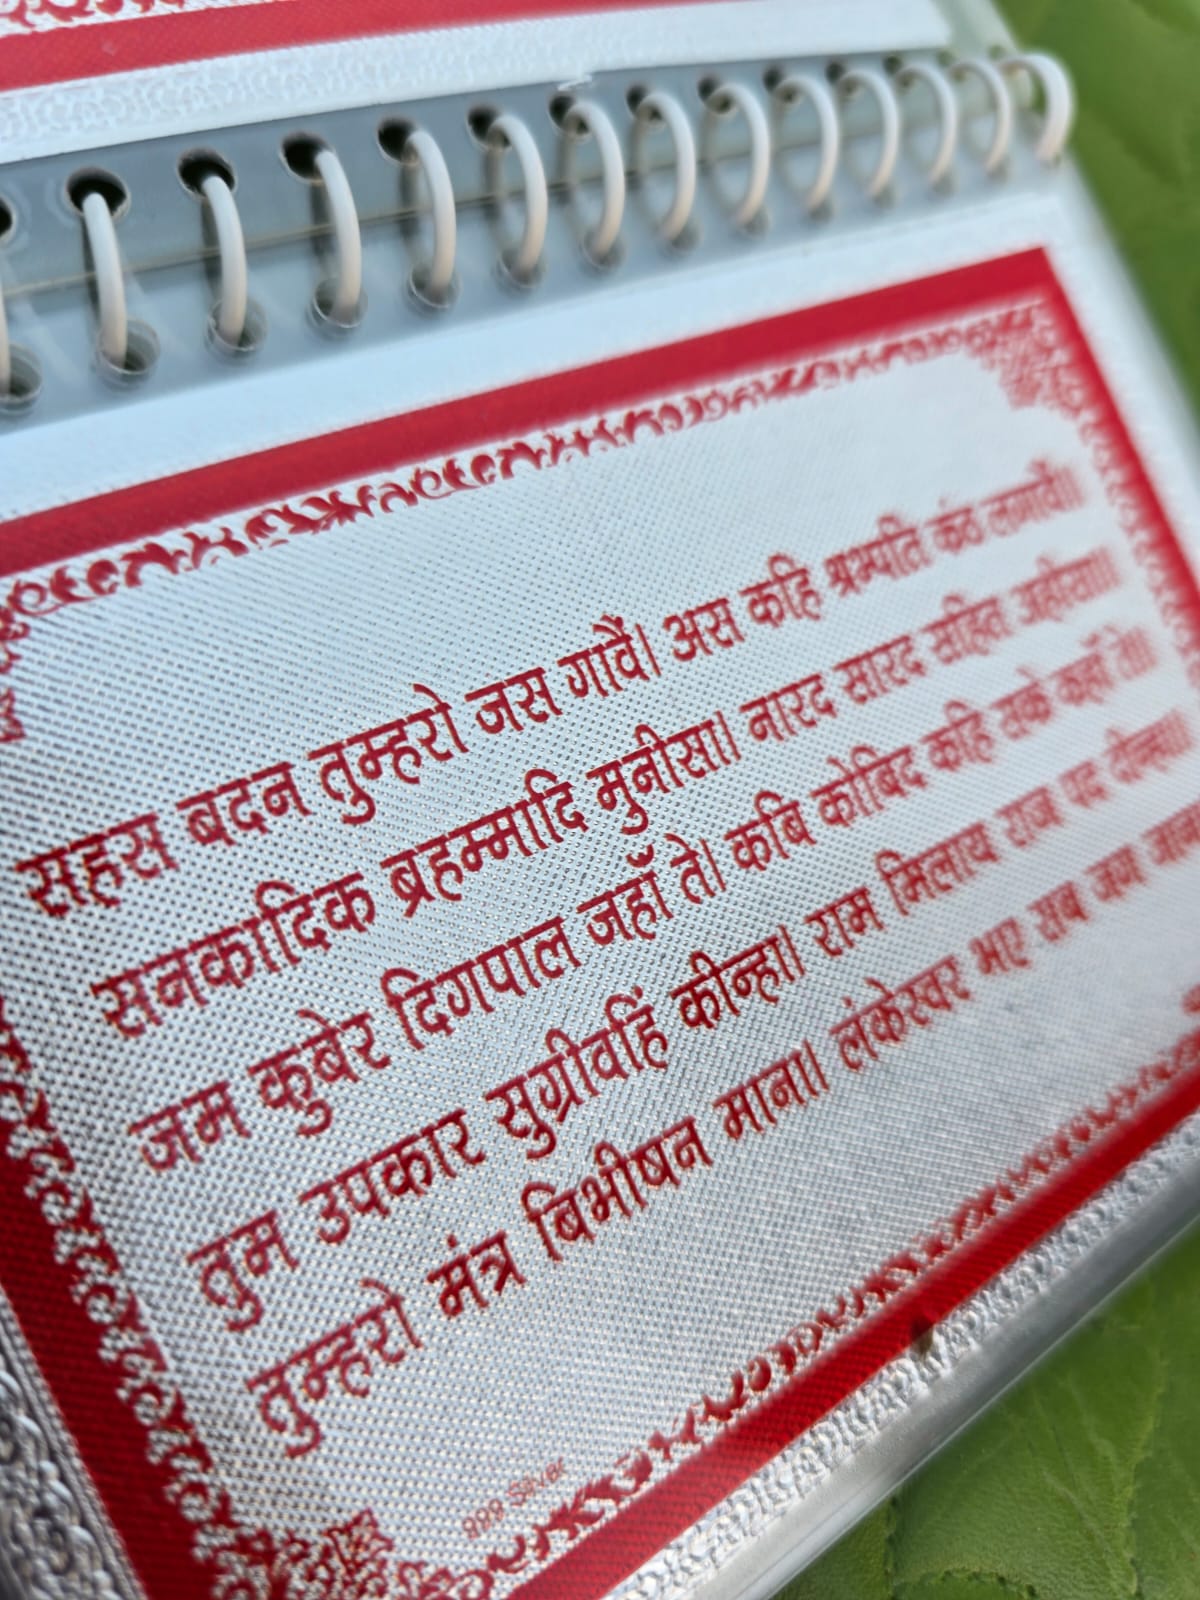 सहस बदन तुम्हरो जस गावैं। अस कहि श्रम्पति कंठ लगावैं॥
सनकादिक ब्रहम्मादि मुनीसा। नारद सारद सहित अहीसा॥
जम कुबेर दिगपाल जहाँ ते। कबि कोबिद कहि सके कहाँ ते॥
तुम उपकार सुग्रीवहिं कीन्हा। राम मिलाय राज पद दीन्हा॥
तुम्हरो मंत्र बिभीषन माना। लंकेस्वर भए सब जग
999 Silver